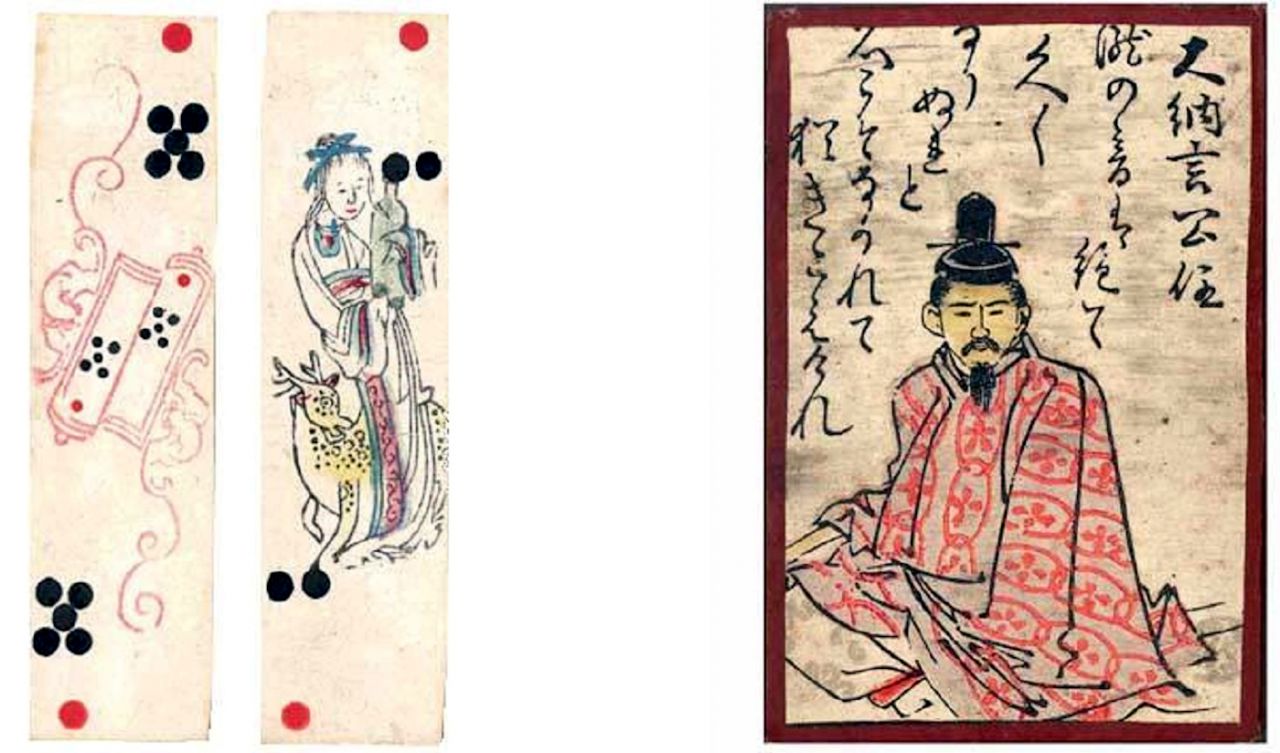 大納言公任
瀧の音は絶て
久しく
なり
ぬれと
名こそなかれて
猶きこえけれ